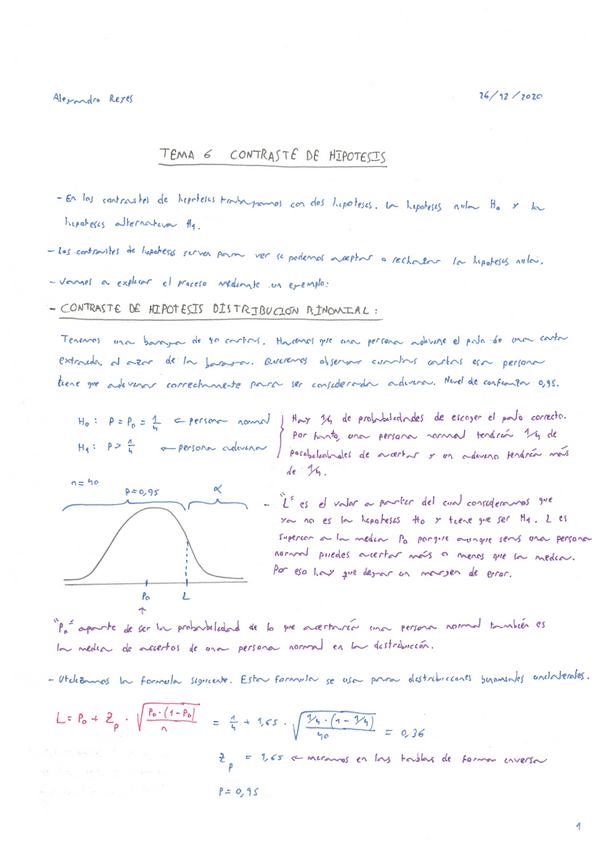 Alejandro Reyes 26/12/2020
TEMA 6 CONTRASTE DE HIPOTESIS
- En los contrastes de hipotesis trabajamos con dos hipotesis. La hipotesis nula H₀ y la
hipotesis alternativa H₁.
- Los contrastes de hipotesis sirven para ver si podemos aceptar o rechazar la hipotesis nula.
- Vamos a explicar el proceso mediante un ejemplo:
- CONTRASTE DE HIPOTESIS DISTRIBUCION BINOMIAL:
Tenemos una baraja de 40 cartas. Hacemos que una persona adivine el palo de una carta
extraida al azar de la baraja. Queremos observar cuantas cartas esa persona
tiene que adivinar correctamente para ser considerada adivina. Nivel de confianza 0,95.
H₀: P = P₀ = 1/4 ← persona normal
H₁: P > 1/4 ← persona adivina
Hay 1/4 de probabilidades de escoger el palo correcto.
Por tanto, una persona normal tendrá 1/4 de
posibilidades de acertar y un adivino tendrá más
de 1/4.
n = 40
P=0,95 α
P₀ L
- "L" es el valor a partir del cual consideramos que
ya no es la hipotesis H₀ y tiene que ser H₁. L es
superior a la media P₀ porque aunque seas una persona
normal puedes acertar más o menos que la media.
Por eso hay que dejar un margen de error.
"P₀" aparte de ser la probabilidad de lo que acertaría una persona normal también es
la media de aciertos de una persona normal en la distribución.
- Utilizamos la formula siguiente. Esta formula se usa para distribuciones binomiales unilaterales.
L = P₀ + Zₚ · √(P₀·(1-P₀)/n) = 1/4 + 1,65 · √(1/4·(1-1/4)/40) = 0,36
Zₚ = 1,65 ← miramos en las tablas de forma inversa
P = 0,95
1